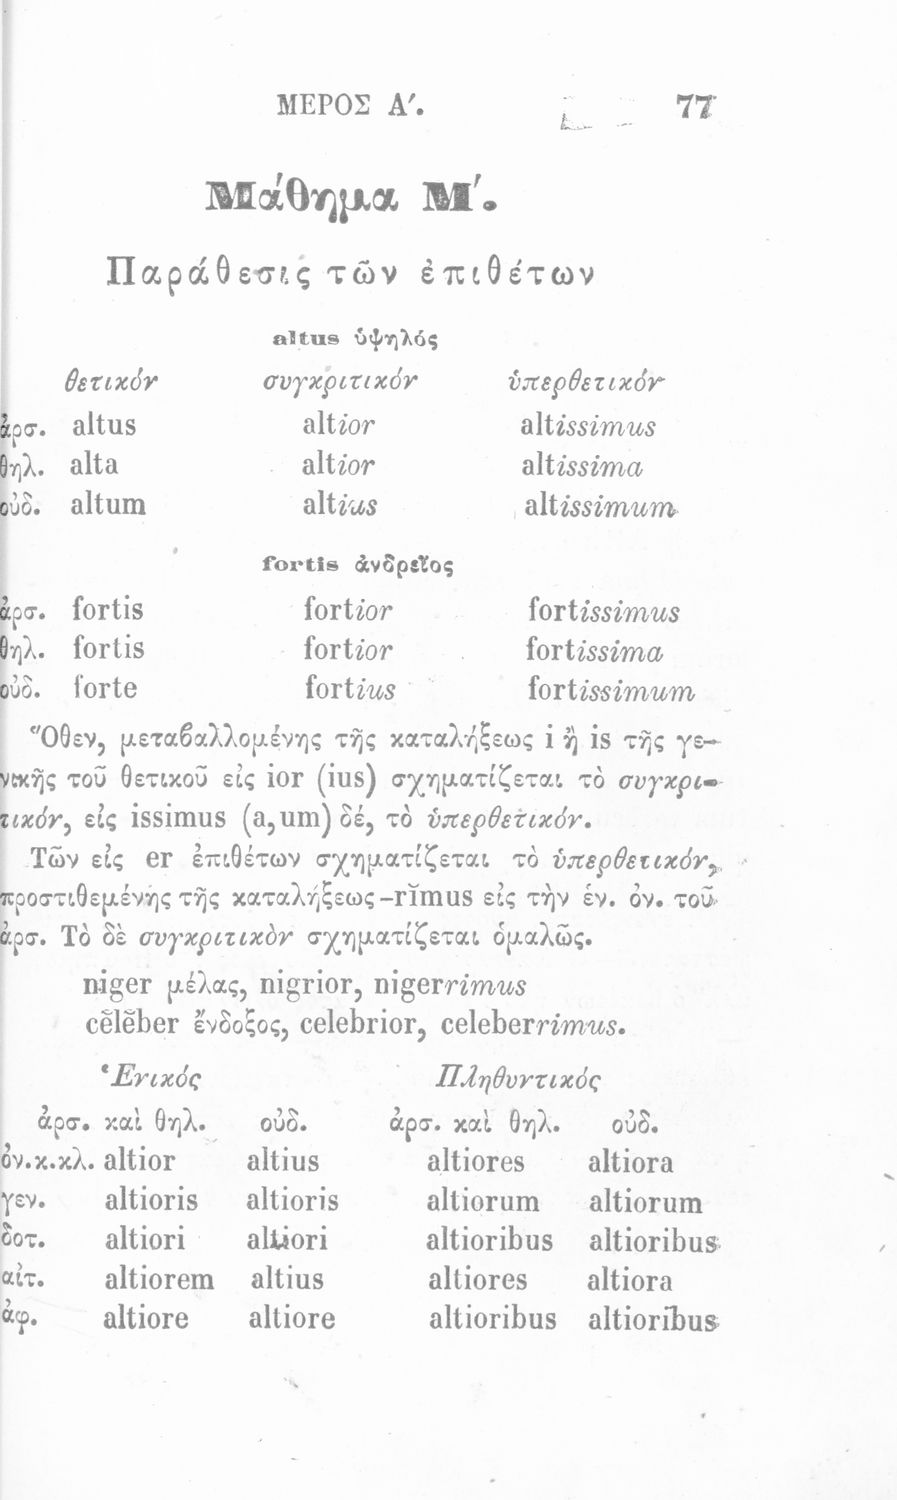 ΜΕΡΟΣ Α'. 77
Μάθημα Μ'.
Παράθεσις τῶν ἐπιθέτων
altus ὑψηλός
θετικόν συγκριτικόν ὑπερθετικόν
ἀρσ. altus altior altissimus
θηλ. alta altior altissima
οὐδ. altum altius altissimum
fortis ἀνδρεῖος
ἀρσ. fortis fortior fortissimus
θηλ. fortis fortior fortissima
οὐδ. forte fortius fortissimum
Ὅθεν, μεταβαλλομένης τῆς καταλήξεως i ἢ is τῆς γε-
νικῆς τοῦ θετικοῦ εἰς ior (ius) σχηματίζεται τὸ συγκρι-
τικόν, εἰς issimus (a,um) δέ, τὸ ὑπερθετικόν.
Τῶν εἰς er ἐπιθέτων σχηματίζεται τὸ ὑπερθετικόν,
προστιθεμένης τῆς καταλήξεως -rĭmus εἰς τὴν ἑν. ὀν. τοῦ
ἀρσ. Τὸ δὲ συγκριτικὸν σχηματίζεται ὁμαλῶς.
niger μέλας, nigrior, nigerrimus
cĕlĕber ἔνδοξος, celebrior, celeberrimus.
Ἑνικός Πληθυντικός
ἀρσ. καὶ θηλ. οὐδ. ἀρσ. καὶ θηλ. οὐδ.
ὀν.κ.κλ. altior altius altiores altiora
γεν. altioris altioris altiorum altiorum
δοτ. altiori altiori altioribus altioribus
αἰτ. altiorem altius altiores altiora
ἀφ. altiore altiore altioribus altioribus